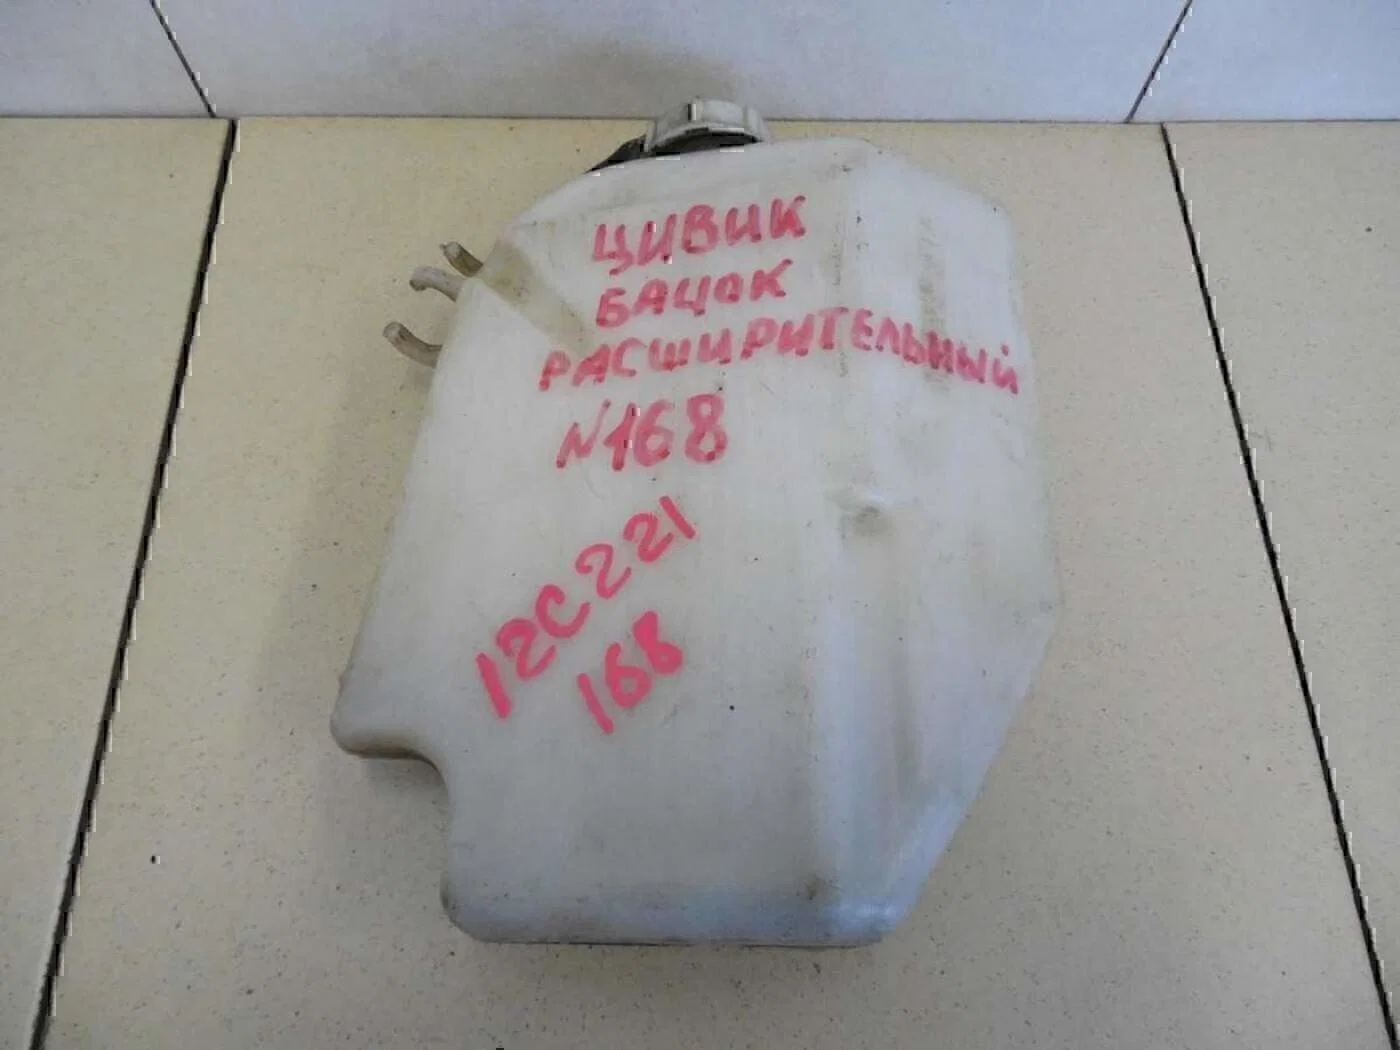 ЦИВИК
БАЦОК
РАСШИРИТЕЛЬНЫЙ
N168
12C221
168